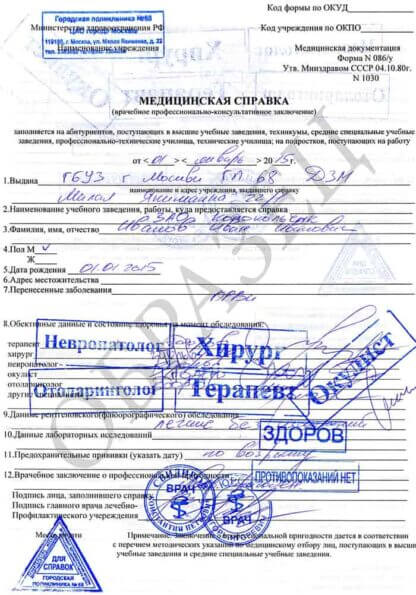 Код формы по ОКУД
Городская поликлиника №68
ЦАО город Москва
Министерство здравоохранения РФ
Код учреждения по ОКПО
Наименование учреждения
Медицинская документация
Форма N 086/у
Утв. Минздравом СССР 04.10.80г.
N 1030
Хирург
МЕДИЦИНСКАЯ СПРАВКА
(врачебное профессионально-консультативное заключение)
заполняется на абитуриентов, поступающих в высшие учебные заведения, техникумы, средние специальные учебные
заведения, профессионально-технические училища, технические училища; на подростков, поступающих на работу
от < 01 > январь > 20 15 г.
1.Выдана ГБУЗ г Москвы ГП 68 ДЗМ
Малая Якиманка 22/
наименование и адрес учреждения, выдавшего справку
2.Наименование учебного заведения, работы, куда предоставляется справка
3.Фамилия, имя, отчество Иванов Иван Иванович
4.Пол М
Ж
5.Дата рождения 01.01.2015
6.Адрес местожительства
7.Перенесенные заболевания
ОРВИ
8.Объективные данные и состояние здоровья на момент обследования:
терапевт
хирург
невропатолог
окулист
отоларинголог
другие специалисты
Невропатолог
Хирург
Окулист
Отоларинголог
Терапевт
9.Данные рентгеновского(флюорографического) обследования
легкие бе
ЗДОРОВ
10.Данные лабораторных исследований
11.Предохранительные прививки (указать дату) по возрасту
12.Врачебное заключение о профессиональной пригодности
ПРОТИВОПОКАЗАНИЙ НЕТ
Подпись лица, заполнившего справку
Подпись главного врача лечебно-
Профилактического учереждения
ВРАЧ
ВРАЧ
Место печати
Примечание. Заключение о профессиональной пригодности дается в соответствии
с перечнем методических указаний по медицинскому отбору лиц, поступающих в высшие
учебные заведения и средние специальные учебные заведения.
ДЛЯ
СПРАВОК
ГОРОДСКАЯ
ПОЛИКЛИНИКА № 68
ОБРАЗЕЦ